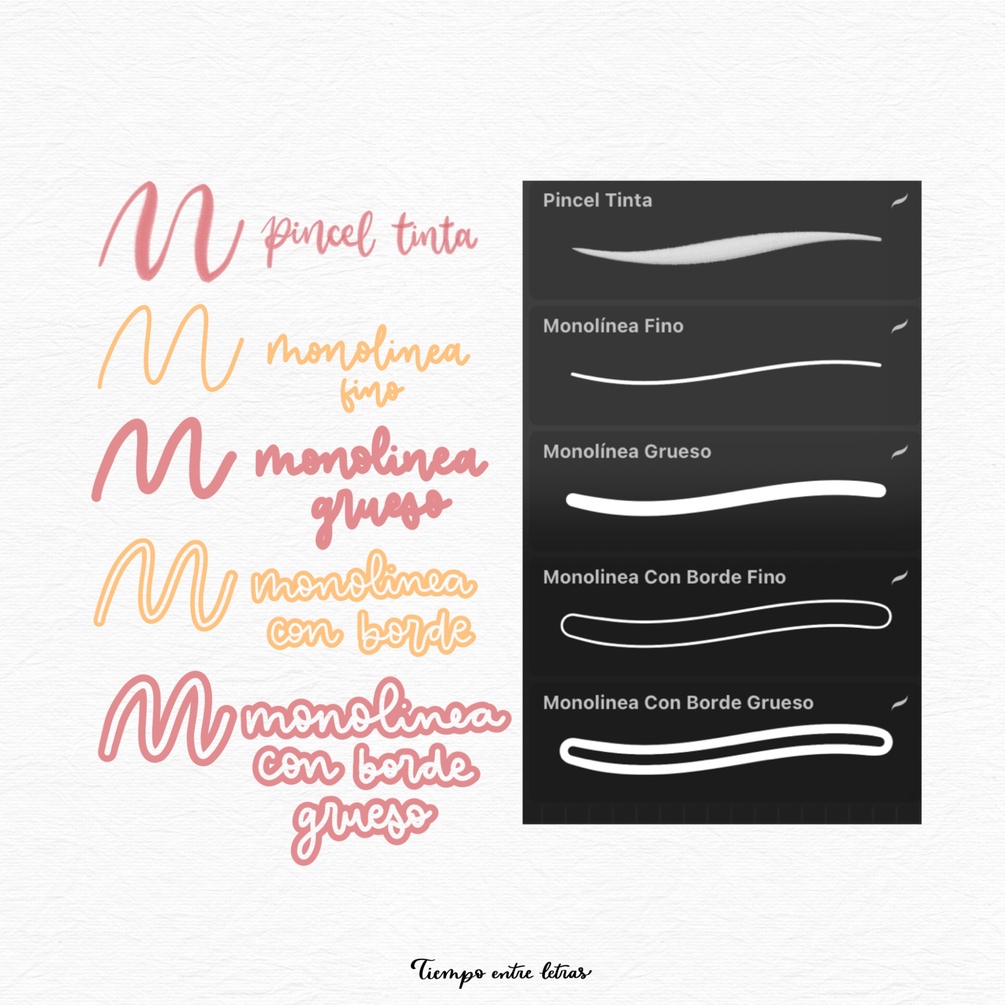 pincel tinta
monolinea
fino
monolinea
grueso
monolinea
con borde
monolinea
con borde
grueso
Pincel Tinta
Monolínea Fino
Monolínea Grueso
Monolinea Con Borde Fino
Monolinea Con Borde Grueso
Tiempo entre letras